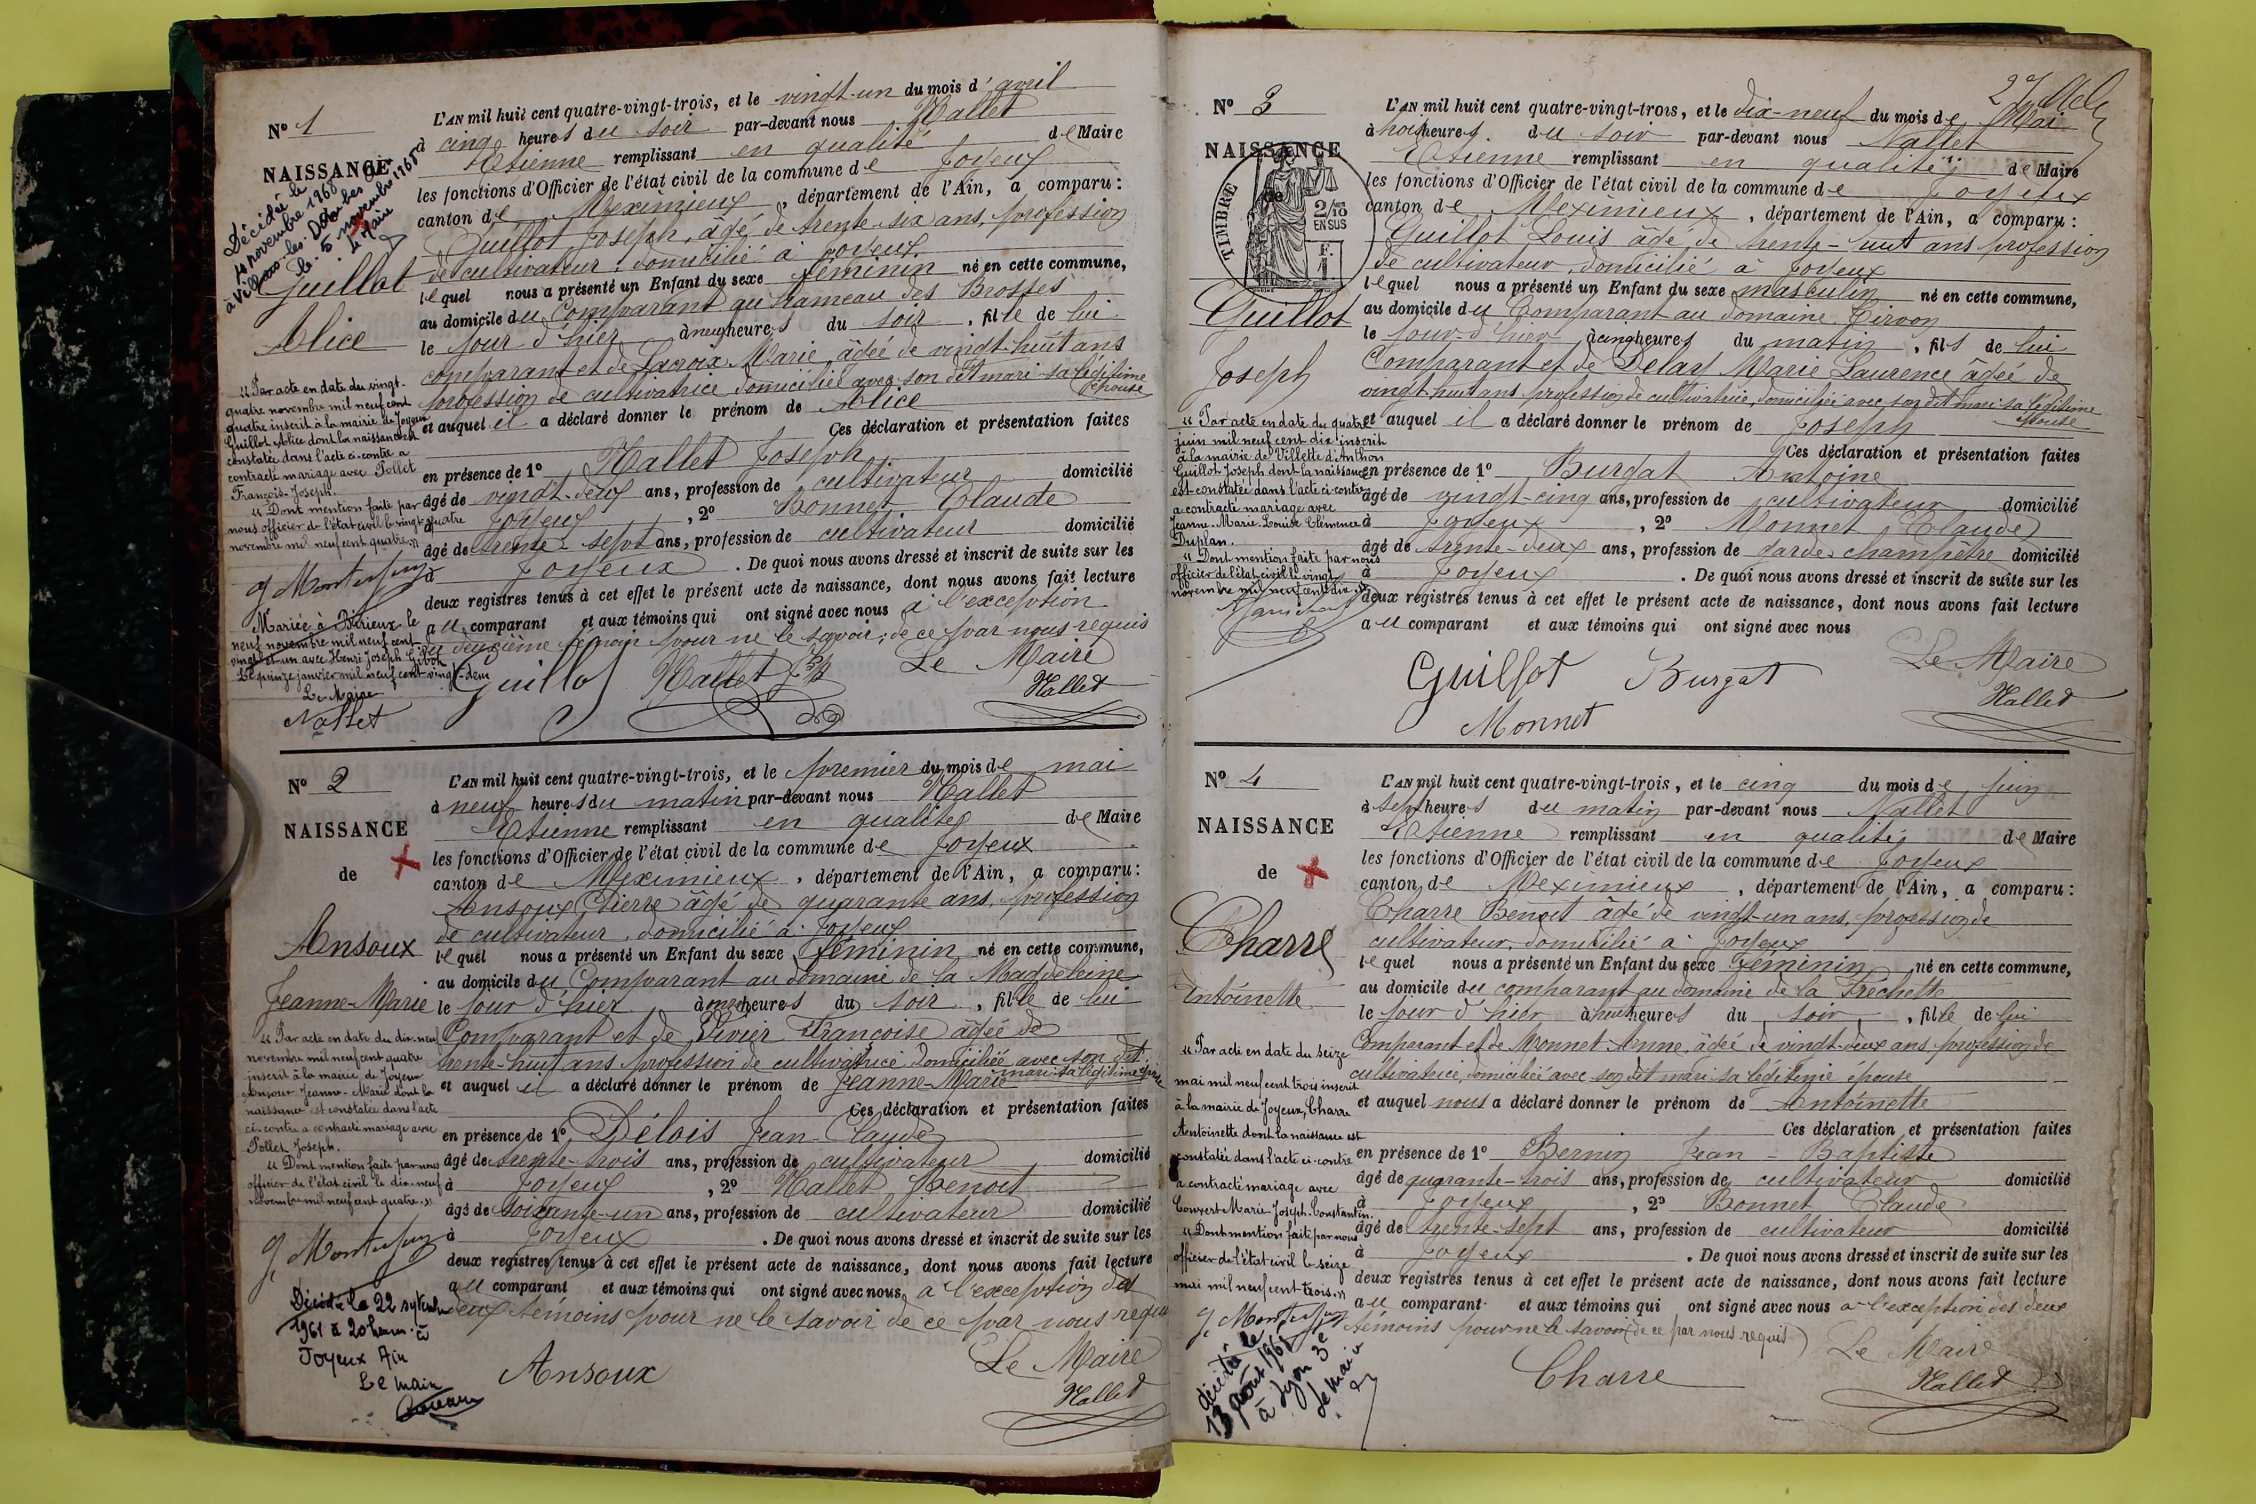 N° 1
NAISSANCE
de
Décédée le
4 novembre 1968
à Villars-les-Dombes
le 5 novembre 1968
Le Maire
Guillot
Alice
L'AN mil huit cent quatre-vingt-trois, et le vingt-un du mois d'avril
à cinq heures du soir par-devant nous Nallet
Etienne remplissant en qualité de Maire
les fonctions d'Officier de l'état civil de la commune de Joyeux
canton de Meximieux, département de l'Ain, a comparu:
Guillot Joseph, âgé de trente-six ans, profession
de cultivateur, domicilié à Joyeux
lequel nous a présenté un Enfant du sexe féminin né en cette commune,
au domicile du Comparant au hameau des Brosses
le jour d'hier à neuf heures du soir, fille de lui
comparant et de Lacroix Marie, âgée de vingt-huit ans
profession de cultivatrice domiciliée avec son dit mari sa légitime
épouse
et auquel il a déclaré donner le prénom de Alice
Ces déclaration et présentation faites
en présence de 1° Nallet Joseph domicilié
âgé de vingt-deux ans, profession de cultivateur
à Joyeux, 2° Bonnet Claude
âgé de trente-sept ans, profession de cultivateur domicilié
à Joyeux. De quoi nous avons dressé et inscrit de suite sur les
deux registres tenus à cet effet le présent acte de naissance, dont nous avons fait lecture
au comparant et aux témoins qui ont signé avec nous à l'exception
du deuxième témoin pour ne le savoir, de ce par nous requis
Guillot Nallet Jh Le Maire
Nallet
« Par acte en date du vingt-
quatre novembre mil neuf cent
quatre inscrit à la mairie de Joyeux
Guillot Alice dont la naissance est
constatée dans l'acte ci-contre a
contracté mariage avec Pollet
François-Joseph.
« Dont mention faite par
nous officier de l'état civil le vingt-quatre
novembre mil neuf cent quatre. »
Mariée à Birieux le
neuf novembre mil neuf cent
vingt et un avec Henri Joseph
Le quinze janvier mil neuf cent vingt-deux
Le Maire
Nallet
N° 2
NAISSANCE
de
Ansoux
Jeanne-Marie
L'AN mil huit cent quatre-vingt-trois, et le premier du mois de mai
à neuf heures du matin par-devant nous Nallet
Etienne remplissant en qualité de Maire
les fonctions d'Officier de l'état civil de la commune de Joyeux
canton de Meximieux, département de l'Ain, a comparu:
Ansoux Pierre âgé de quarante ans, profession
de cultivateur, domicilié à Joyeux
lequel nous a présenté un Enfant du sexe féminin né en cette commune,
au domicile du Comparant au domaine de la Magdeleine
le jour d'hier à onze heures du soir, fille de lui
Comparant et de Livier Françoise âgée de
trente-huit ans profession de cultivatrice domiciliée avec son dit
mari sa légitime épouse
et auquel il a déclaré donner le prénom de Jeanne-Marie
Ces déclaration et présentation faites
en présence de 1° Délois Jean-Claude
âgé de trente-trois ans, profession de cultivateur domicilié
à Joyeux, 2° Nallet Benoit
âgé de soixante-un ans, profession de cultivateur domicilié
à Joyeux. De quoi nous avons dressé et inscrit de suite sur les
deux registres tenus à cet effet le présent acte de naissance, dont nous avons fait lecture
au comparant et aux témoins qui ont signé avec nous, à l'exception des
deux témoins pour ne le savoir de ce par nous requis
Ansoux Le Maire
Nallet
« Par acte en date du dix-neuf
novembre mil neuf cent quatre
inscrit à la mairie de Joyeux
Ansoux Jeanne-Marie dont la
naissance est constatée dans l'acte
ci-contre a contracté mariage avec
Pollet Joseph.
« Dont mention faite par nous
officier de l'état civil le dix-neuf
novembre mil neuf cent quatre. »
Décédée le 22 septembre
1961 à 20 heures à
Joyeux Ain
Le maire
27
N° 3
NAISSANCE
de
TIMBRE
2/10
EN SUS
F.
1
Guillot
Joseph
L'AN mil huit cent quatre-vingt-trois, et le dix-neuf du mois de Mai
à trois heures du soir par-devant nous Nallet
Etienne remplissant en qualité de Maire
les fonctions d'Officier de l'état civil de la commune de Joyeux
canton de Meximieux, département de l'Ain, a comparu:
Guillot Louis âgé de trente-huit ans profession
de cultivateur, domicilié à Joyeux
lequel nous a présenté un Enfant du sexe masculin né en cette commune,
au domicile du Comparant au domaine
le jour d'hier à cinq heures du matin, fils de lui
Comparant et de Marie Laurence âgée de
vingt-huit ans profession de cultivatrice, domiciliée avec son dit mari sa légitime
épouse
et auquel il a déclaré donner le prénom de Joseph
Ces déclaration et présentation faites
en présence de 1° Burgat Antoine
âgé de vingt-cinq ans, profession de cultivateur domicilié
à Joyeux, 2° Monnet Claude
âgé de trente-deux ans, profession de garde-champêtre domicilié
à Joyeux. De quoi nous avons dressé et inscrit de suite sur les
deux registres tenus à cet effet le présent acte de naissance, dont nous avons fait lecture
au comparant et aux témoins qui ont signé avec nous
Guillot Burgat Le Maire
Monnet Nallet
« Par acte en date du quatre
juin mil neuf cent dix inscrit
à la mairie de Villette d'Anthon
Guillot Joseph dont la naissance
est constatée dans l'acte ci-contre
a contracté mariage avec
Jeanne-Marie Louise Clémence
Duplan.
« Dont mention faite par nous
officier de l'état civil le vingt
novembre mil neuf cent dix. »
N° 4
NAISSANCE
de
Charre
Antoinette
L'AN mil huit cent quatre-vingt-trois, et le cinq du mois de juin
à sept heures du matin par-devant nous Nallet
Etienne remplissant en qualité de Maire
les fonctions d'Officier de l'état civil de la commune de Joyeux
canton de Meximieux, département de l'Ain, a comparu:
Charre Benoit âgé de vingt-un ans, profession de
cultivateur, domicilié à Joyeux
lequel nous a présenté un Enfant du sexe Féminin né en cette commune,
au domicile du comparant au domaine de la Fréchette
le jour d'hier à huit heures du soir, fille de lui
Comparant et de Monnet Anne, âgée de vingt-deux ans, profession de
cultivatrice, domiciliée avec son dit mari sa légitime épouse
et auquel nous a déclaré donner le prénom de Antoinette
Ces déclaration et présentation faites
en présence de 1° Bernin Jean-Baptiste
âgé de quarante-trois ans, profession de cultivateur domicilié
à Joyeux, 2° Bonnet Claude
âgé de trente-sept ans, profession de cultivateur domicilié
à Joyeux. De quoi nous avons dressé et inscrit de suite sur les
deux registres tenus à cet effet le présent acte de naissance, dont nous avons fait lecture
au comparant et aux témoins qui ont signé avec nous à l'exception des deux
témoins pour ne le savoir (de ce par nous requis)
Charre Le Maire
Nallet
« Par acte en date du seize
mai mil neuf cent trois inscrit
à la mairie de Joyeux, Charre
Antoinette dont la naissance est
constatée dans l'acte ci-contre
a contracté mariage avec
Convert Marie-Joseph-Constantin.
« Dont mention faite par nous
officier de l'état civil le seize
mai mil neuf cent trois. »
décédée le
13 août 196
à Lyon 3e
Le maire